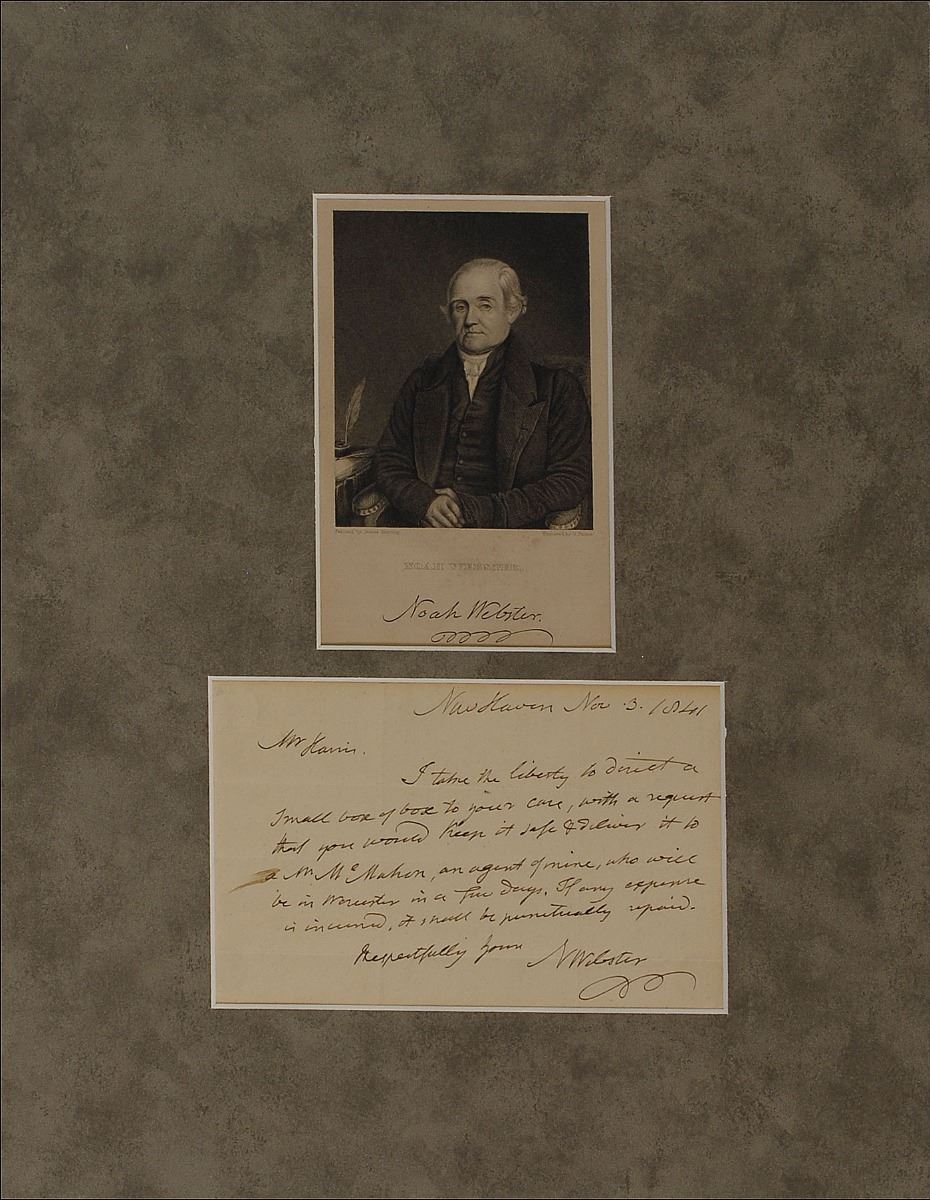 Painted by James Herring
Engraved by
NOAH WEBSTER.
Noah Webster.
New Haven Nov 3. 1841
Mr Harris.
I take the liberty to direct a
small box of box to your care, with a request
that you would keep it safe & deliver it to
a Mr McMahon, an agent of mine, who will
be in Worcester in a few days. If any expense
is incurred, it shall be punctually repaid.
Respectfully yours
N Webster